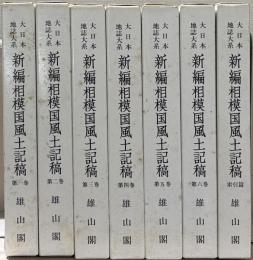 大日本地誌大系
新編相模国風土記稿
第一巻
雄山閣
大日本地誌大系
新編相模国風土記稿
第二巻
雄山閣
大日本地誌大系
新編相模国風土記稿
第三巻
雄山閣
大日本地誌大系
新編相模国風土記稿
第四巻
雄山閣
大日本地誌大系
新編相模国風土記稿
第五巻
雄山閣
大日本地誌大系
新編相模国風土記稿
第六巻
雄山閣
大日本地誌大系
新編相模国風土記稿
索引篇
雄山閣